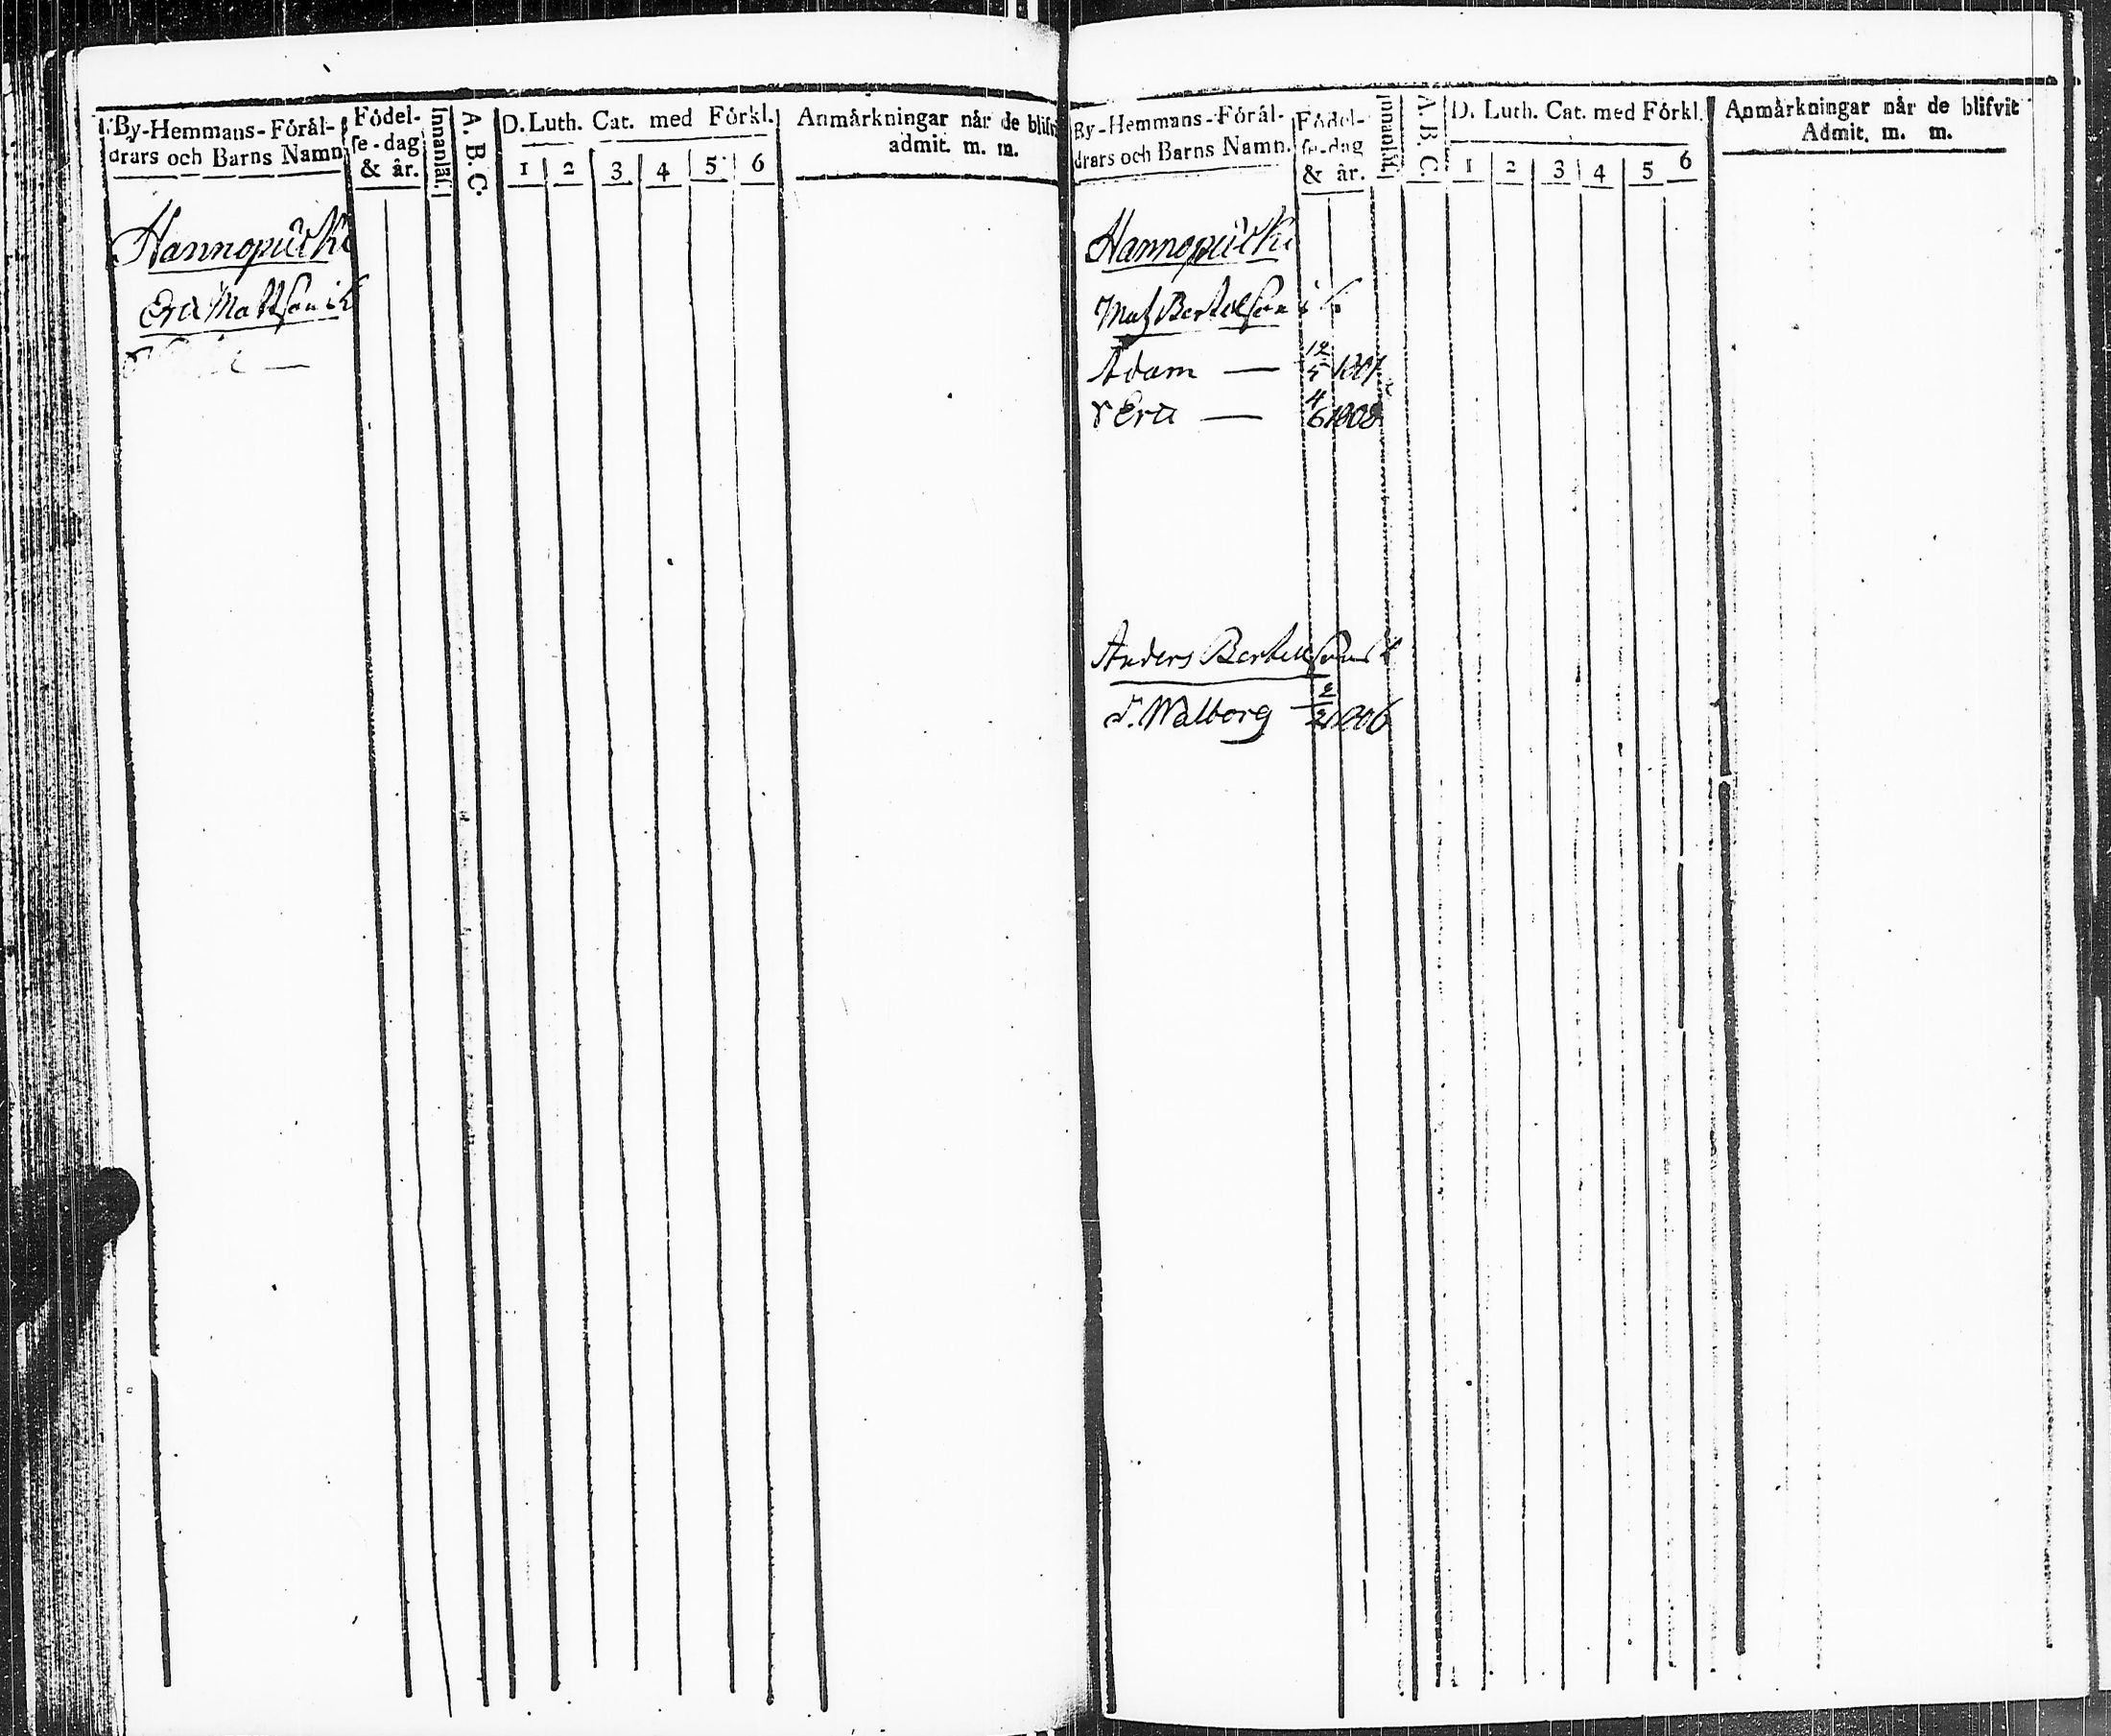 By-Hemmans-Förål-
drars och Barns Namn
Födel-
se-dag
& år.
Innanläs.
A. B. C.
D. Luth. Cat. med Förkl.
1 2 3 4 5 6
Anmärkningar når de blifv
admit. m. m.
Hannopurki
Eric Mattson
By-Hemmans-Förål-
drars och Barns Namn.
Födel-
se-dag
& år.
Innanläs.
A. B. C.
D. Luth. Cat. med Förkl.
1 2 3 4 5 6
Anmärkningar når de blifvit
Admit. m. m.
Hannopurki
Matz Bertelson
Adam — 12/5 1801
Eric — 4/6 1808
Anders Bertelson
d. Walborg 2/2 1806